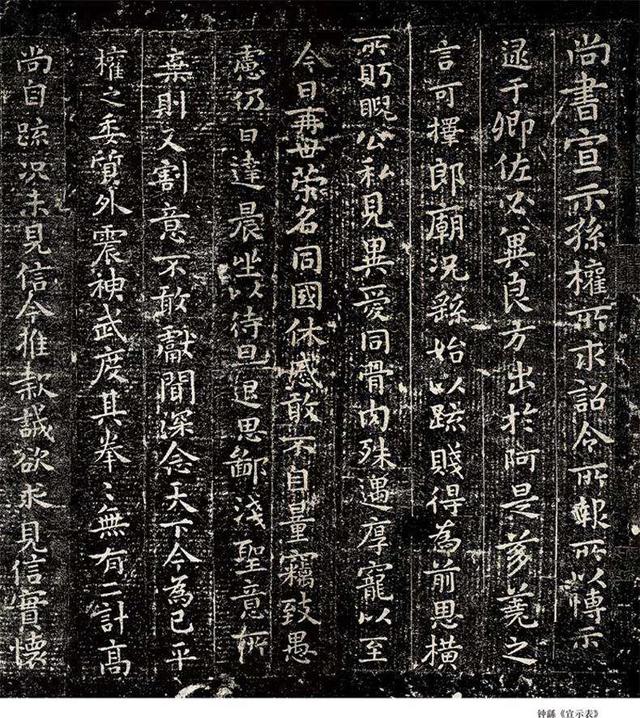 尚書宣示孫權所求詔令所報所以博示
逮于卿佐必冀良方出於阿是芻蕘之
言可擇郎廟況繇始以疏賤得為前恩橫
所眄睨公私見異愛同骨肉殊遇厚寵以至
今日再世榮名同國休慼敢不自量竊致愚
慮仍日達晨坐以待旦退思鄙淺聖意所
棄則又割意不敢獻聞深念天下今為已平
權之委質外震神武度其拳〻無有二計高
尚自疏況未見信今推款誠欲求見信實懷
钟繇《宣示表》